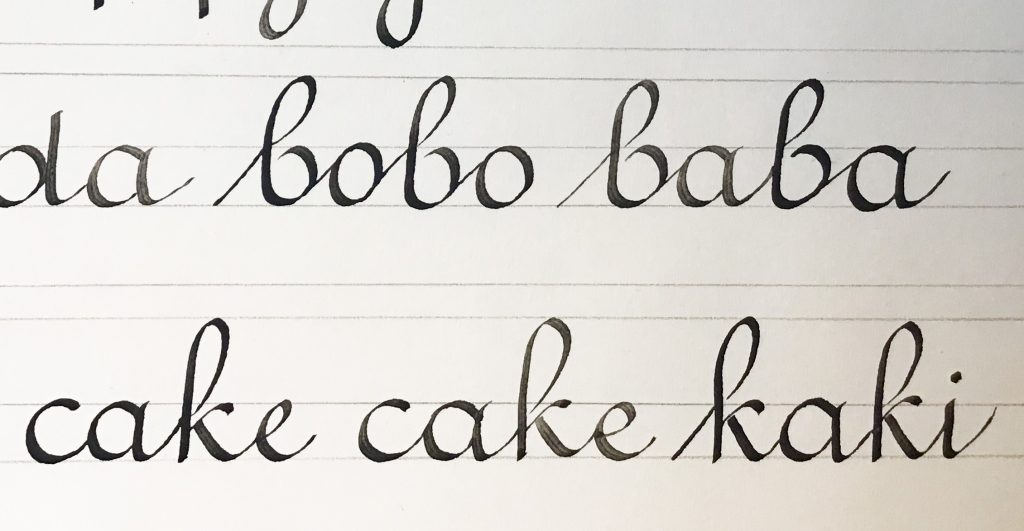 da bobo baba
cake cake kaki